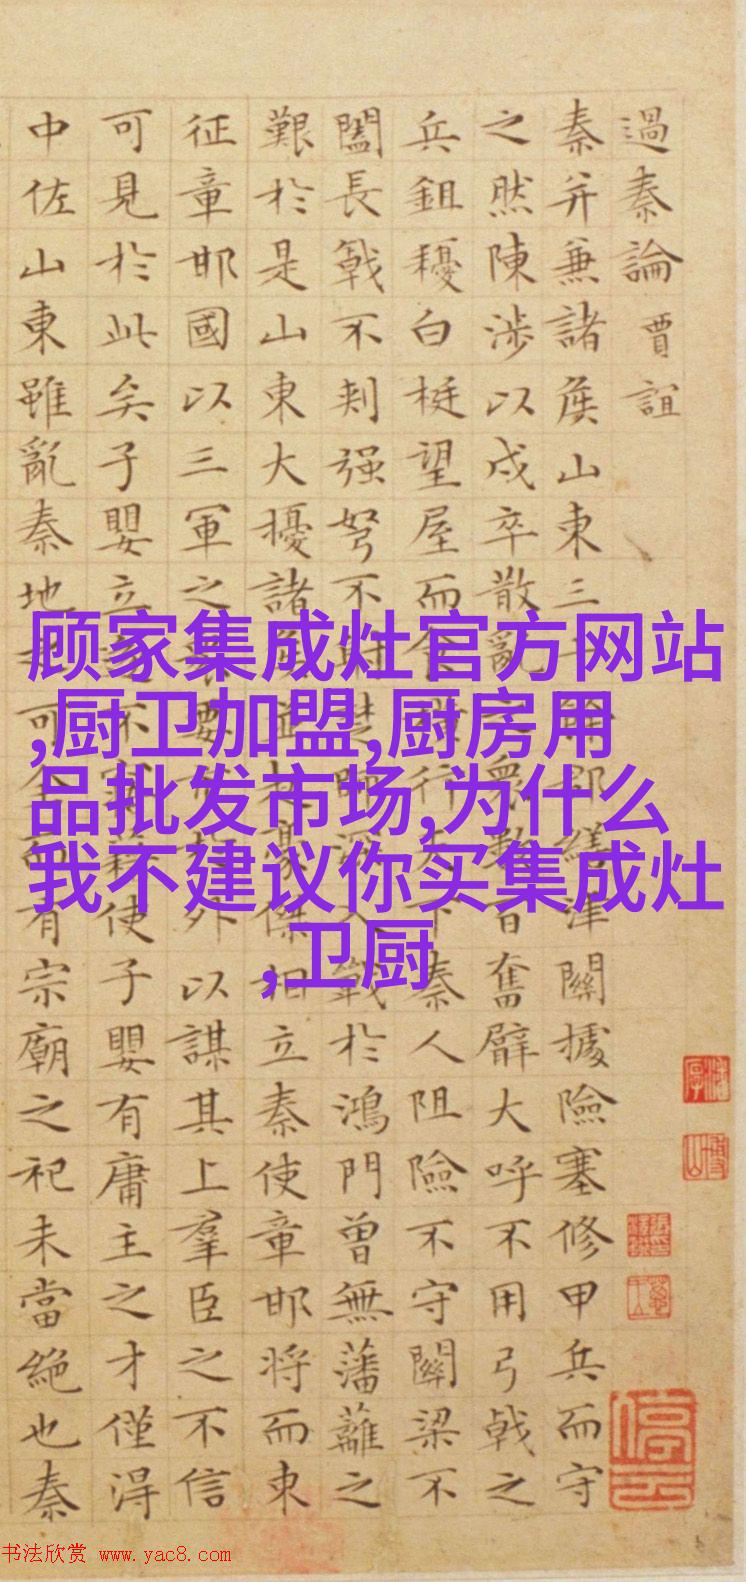 過秦論 賈誼
秦并兼諸侯山東三津關據險塞修甲兵而守
之然陳涉以戍卒散亂百奮臂大呼不用弓戟之
兵鉏耰白梃望屋而行天下秦人阻險不守關梁不
闔長戟不刺强弩不射楚入戰於鴻門曾無藩籬之
艱於是山東大擾諸並起豪傑相立秦使章邯將而東
征章邯國以三軍之要外以謀其上羣臣之不信
可見於此矣子嬰立不使子嬰有庸主之才僅得
中佐山東雖亂秦地可全有宗廟之祀未當絕也秦
顾家集成灶官方网站
,厨卫加盟,厨房用
品批发市场,为什么
我不建议你买集成灶
,卫厨
书法欣赏 www.yac8.com